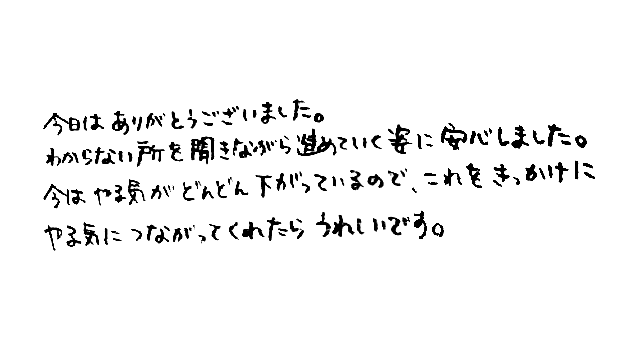 今日はありがとうございました。
わからない所を聞きながら進めていく姿に安心しました。
今はやる気がどんどん下がっているので、これをきっかけに
やる気につながってくれたらうれしいです。